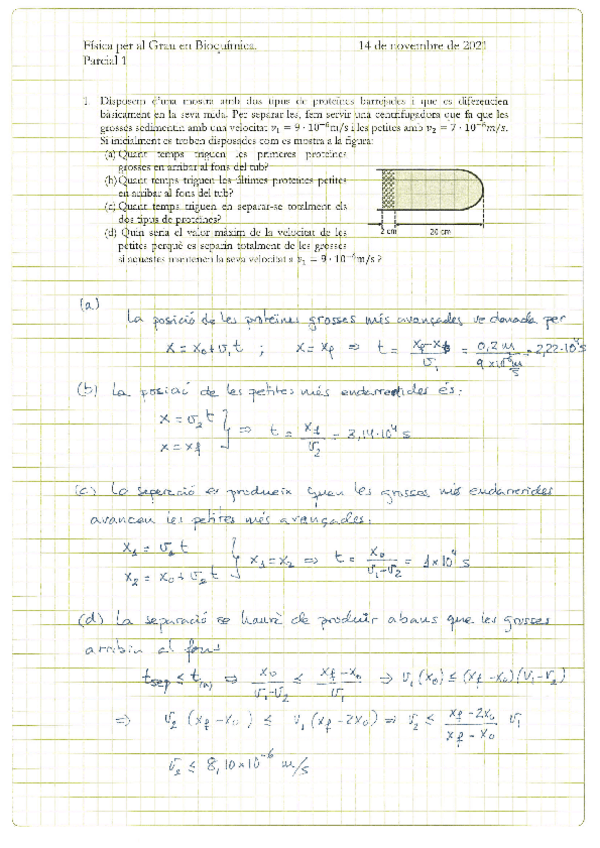 Física per al Grau en Bioquímica. 14 de novembre de 2021
Parcial 1
1. Disposem d'una mostra amb dos tipus de proteïnes barrejades i que es diferencien
bàsicament en la seva mida. Per separar-les, fem servir una centrifugadora que fa que les
grosses sedimentin amb una velocitat v₁ = 9 · 10⁻⁶m/s i les petites amb v₂ = 7 · 10⁻⁶m/s.
Si inicialment es troben disposades com es mostra a la figura:
(a) Quant temps triguen les primeres proteïnes
grosses en arribar al fons del tub?
(b) Quant temps triguen les últimes proteïnes petites
en arribar al fons del tub?
(c) Quant temps triguen en separar-se totalment els
dos tipus de proteïnes?
(d) Quin seria el valor màxim de la velocitat de les
petites perquè es separin totalment de les grosses
si aquestes mantenen la seva velocitat a v₁ = 9 · 10⁻⁶m/s ?
2 cm 20 cm
(a)
La posició de les proteïnes grosses més avançades ve donada per
x = x₀ + v₁ t ; x = x_f ⇒ t = (x_f - x₀)/v₁ = 0,2 m / 9 x 10⁻⁶ m/s = 2,22·10⁴ s
(b) La posició de les petites més endarrerides és:
x = v₂ t
x = x_f } ⇒ t = x_f/v₂ = 3,14·10⁴ s
(c) La separació es produeix quan les grosses més endarrerides
avancen les petites més avançades:
x₁ = v₁ t
x₂ = x₀ + v₂ t } x₁ = x₂ ⇒ t = x₀/(v₁-v₂) = 1×10⁴ s
(d) La separació se haurà de produir abans que les grosses
arribin al fons
t_sep ≤ t_(a) ⇔ x₀/(v₁-v₂) ≤ (x_f-x₀)/v₁ ⇒ v₁(x₀) ≤ (x_f-x₀)(v₁-v₂)
⇒ v₂ (x_f-x₀) ≤ v₁ (x_f-2x₀) ⇒ v₂ ≤ (x_f-2x₀)/(x_f-x₀) v₁
v₂ ≤ 8,10×10⁻⁶ m/s